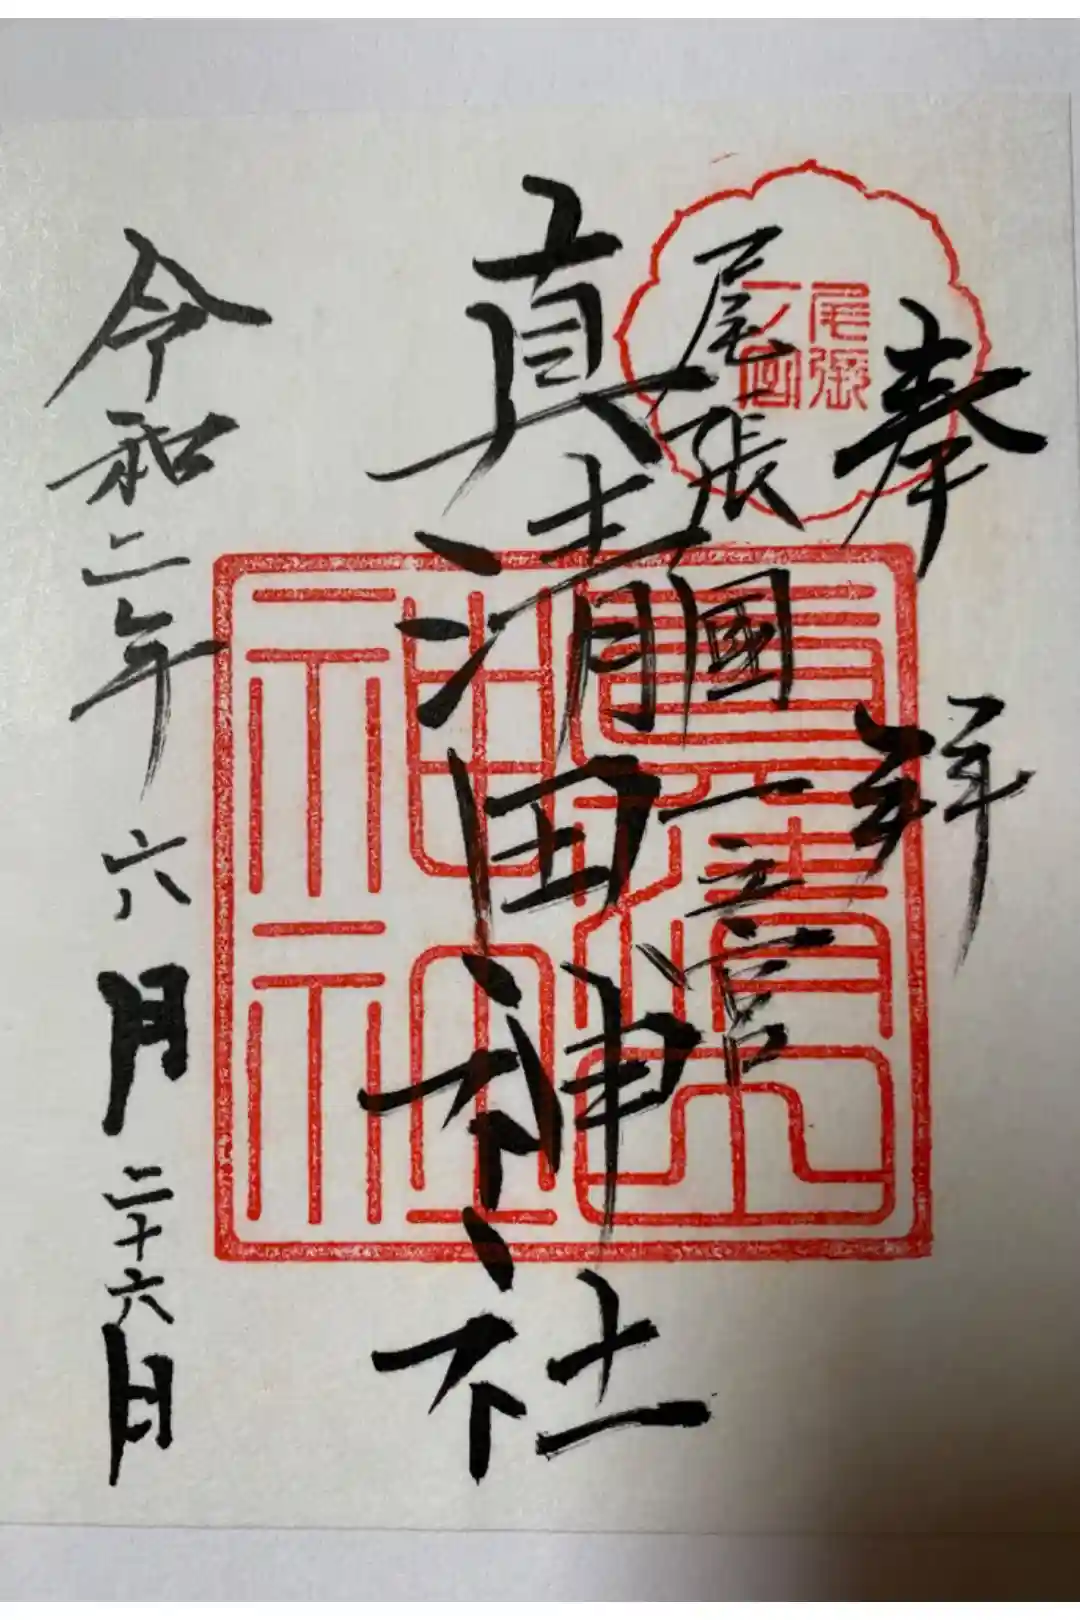 奉拝
尾張
一ノ宮
尾張國一之宮
真清田神社
真清田
神社
令和二年六月二十六日